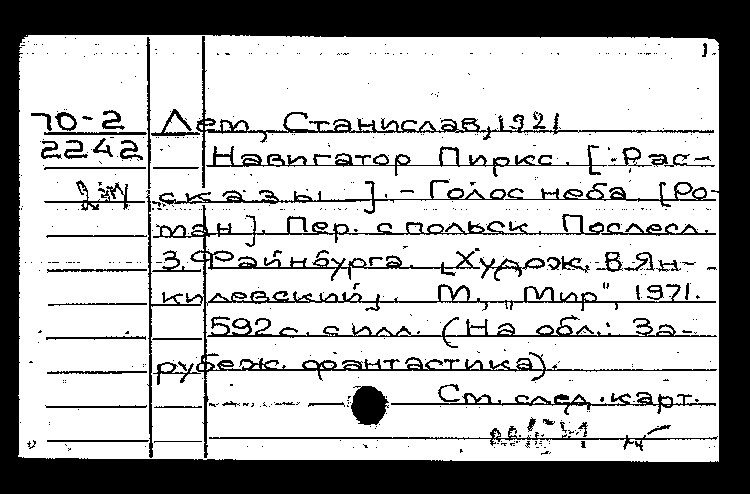 1
70-2 Лем, Станислав, 1921
2242 Навигатор Пиркс. [Рас-
сказы]. - Голос неба [Ро-
ман]. Пер. с польск. Послесл.
З. Файнбурга. [Худож. В. Ян-
килевский]. М., "Мир", 1971.
592 с. с илл. (На обл.: За-
рубеж. фантастика).
См. след. карт.